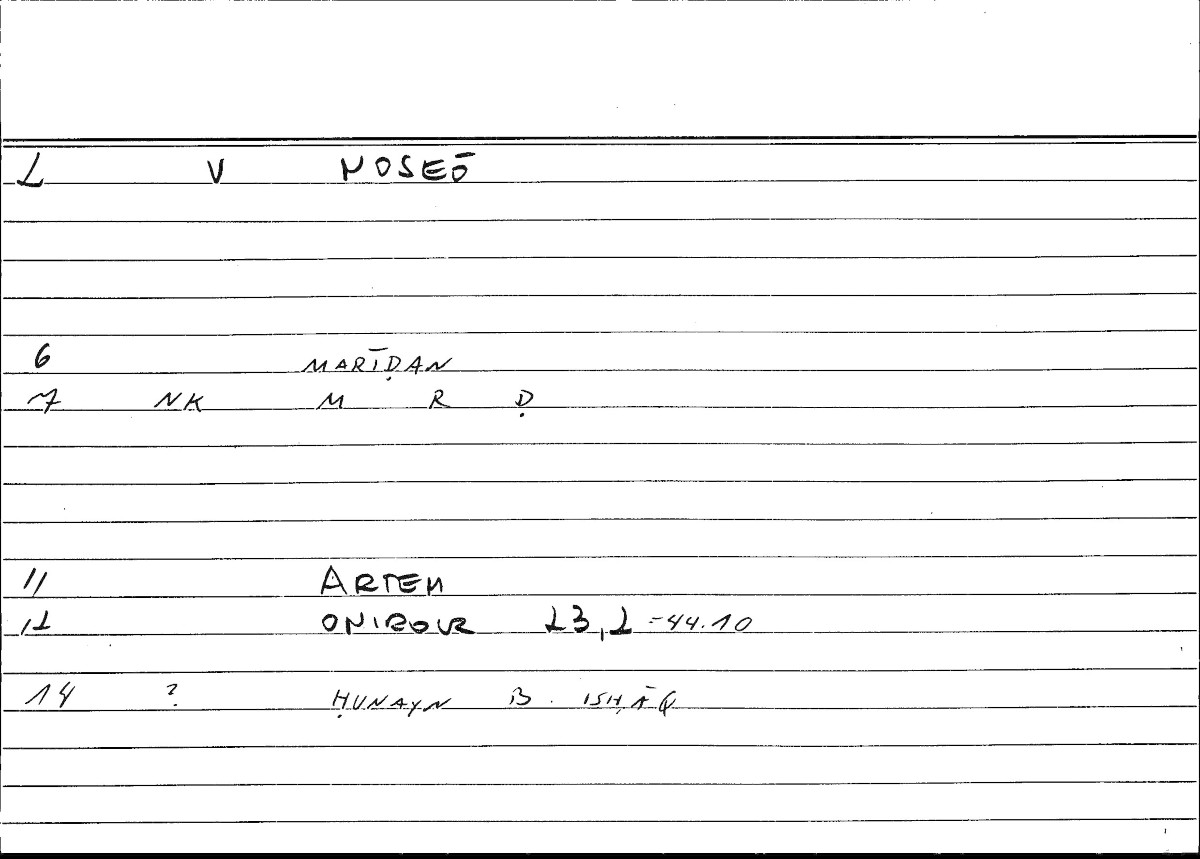 2 V NOSEŌ
6 MARĪḌAN
7 NK M R Ḍ
11 ARTEM
12 ONIROCR 23,2 = 44.10
14 ? ḤUNAYN B. ISḤĀQ